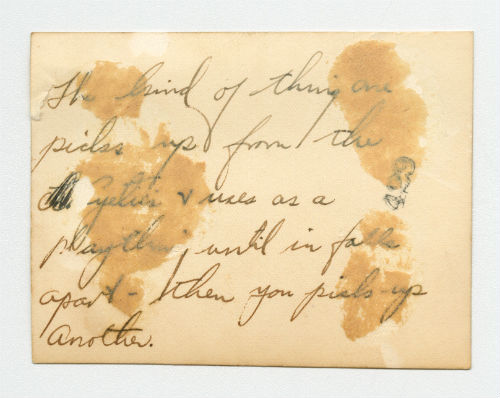 The kind of thing one
picks up from the
& uses as a
plaything, until it falls
apart - then you picks up
another.
429